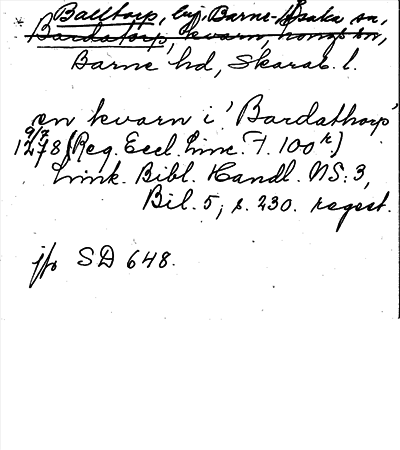 * Balltorp, by, Barne-Åsaka sn,
Bardatorp, kvarn, Longs sn,
Barne hd, Skarab. l.
en kvarn i 'Bardathorp'
9/7
1278 (Reg. Eccl. Linc. f. 100 r.)
Link. Bibl. Handl. NS: 3,
Bil. 5, s. 230. regest.
jfr SD 648.